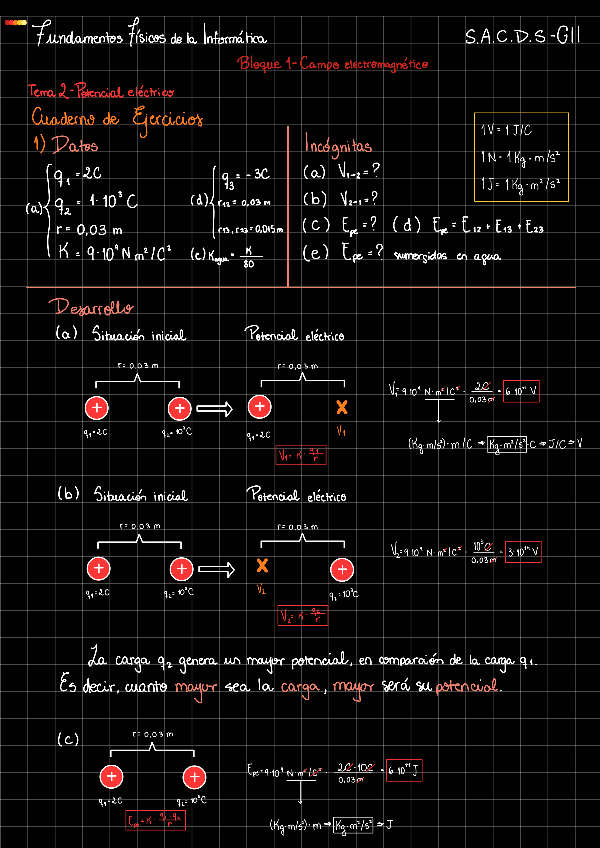 Fundamentos Físicos de la Informática
S.A.C.D.S-GII
Bloque 1-Campo electromagnético
Tema 2-Potencial eléctrico
Cuaderno de Ejercicios
1) Datos
(a) q₁ = 2C
q₂ = 1·10³ C
r = 0,03 m
K = 9·10⁹ N m²/C²
(d) q₃ = -3C
r₁₂ = 0,03 m
r₁₃, r₂₃ = 0,015 m
(e) K_agua = K/80
Incógnitas
(a) V₁₋₂ = ?
(b) V₂₋₁ = ?
(c) Epe = ? (d) Epe = E₁₂ + E₁₃ + E₂₃
(e) Epe = ? sumergidas en agua
1V = 1 J/C
1N = 1 Kg·m/s²
1J = 1 Kg·m²/s²
Desarrollo
(a) Situación inicial
Potencial eléctrico
r = 0,03 m
r = 0,03 m
+ + + x
q₁ = 2C
q₂ = 10³C
q₁ = 2C
V₁
V₁ = K · q₁/r
V₁ = 9·10⁹ N·m²/C² · 2C/0,03m = 6·10¹¹ V
(Kg·m/s²)·m/C ⇒ Kg·m²/s² ·C ⇒ J/C ⇒ V
(b) Situación inicial
Potencial eléctrico
r = 0,03 m
r = 0,03 m
+ + x +
q₁ = 2C
q₂ = 10³C
V₂
q₂ = 10³C
V₂ = K · q₂/r
V₂ = 9·10⁹ N·m²/C² · 10³C/0,03m = 3·10¹⁴ V
La carga q₂ genera un mayor potencial, en comparación de la carga q₁.
Es decir, cuanto mayor sea la carga, mayor será su potencial.
(c)
r = 0,03 m
+ +
q₁ = 2C
q₂ = 10³C
Epe = K · q₁·q₂/r
Epe = 9·10⁹ N·m²/C² · 2C·10³C/0,03m = 6·10¹⁴ J
(Kg·m/s²)·m ⇒ Kg·m²/s² ⇒ J